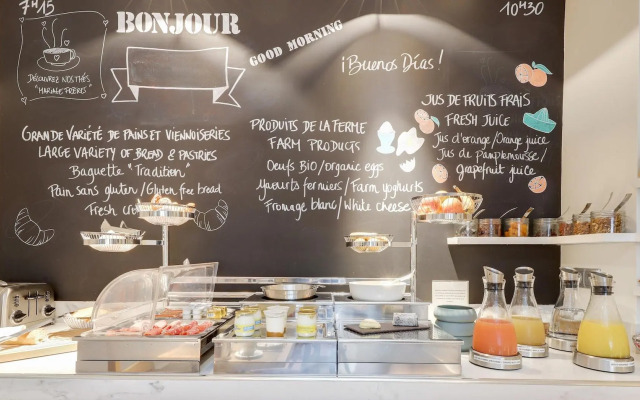 7H15
10H30
BONJOUR
GOOD MORNING
¡Buenos Días!
DÉCOUVREZ NOS THÉS
"MARIAGE FRÈRES"
GRANDE VARIÉTÉ DE PAINS ET VIENNOISERIES
LARGE VARIETY OF BREAD & PASTRIES
Baguette "Tradition"
Pain sans gluten / Gluten free bread
Fresh
PRODUITS DE LA FERME
FARM PRODUCTS
Oeufs Bio / organic eggs
Yaourts fermiers / Farm yoghurts
Fromage blanc / White cheese
JUS DE FRUITS FRAIS
FRESH JUICE
Jus d'orange / Orange juice
Jus de Pamplemousse /
grapefruit juice